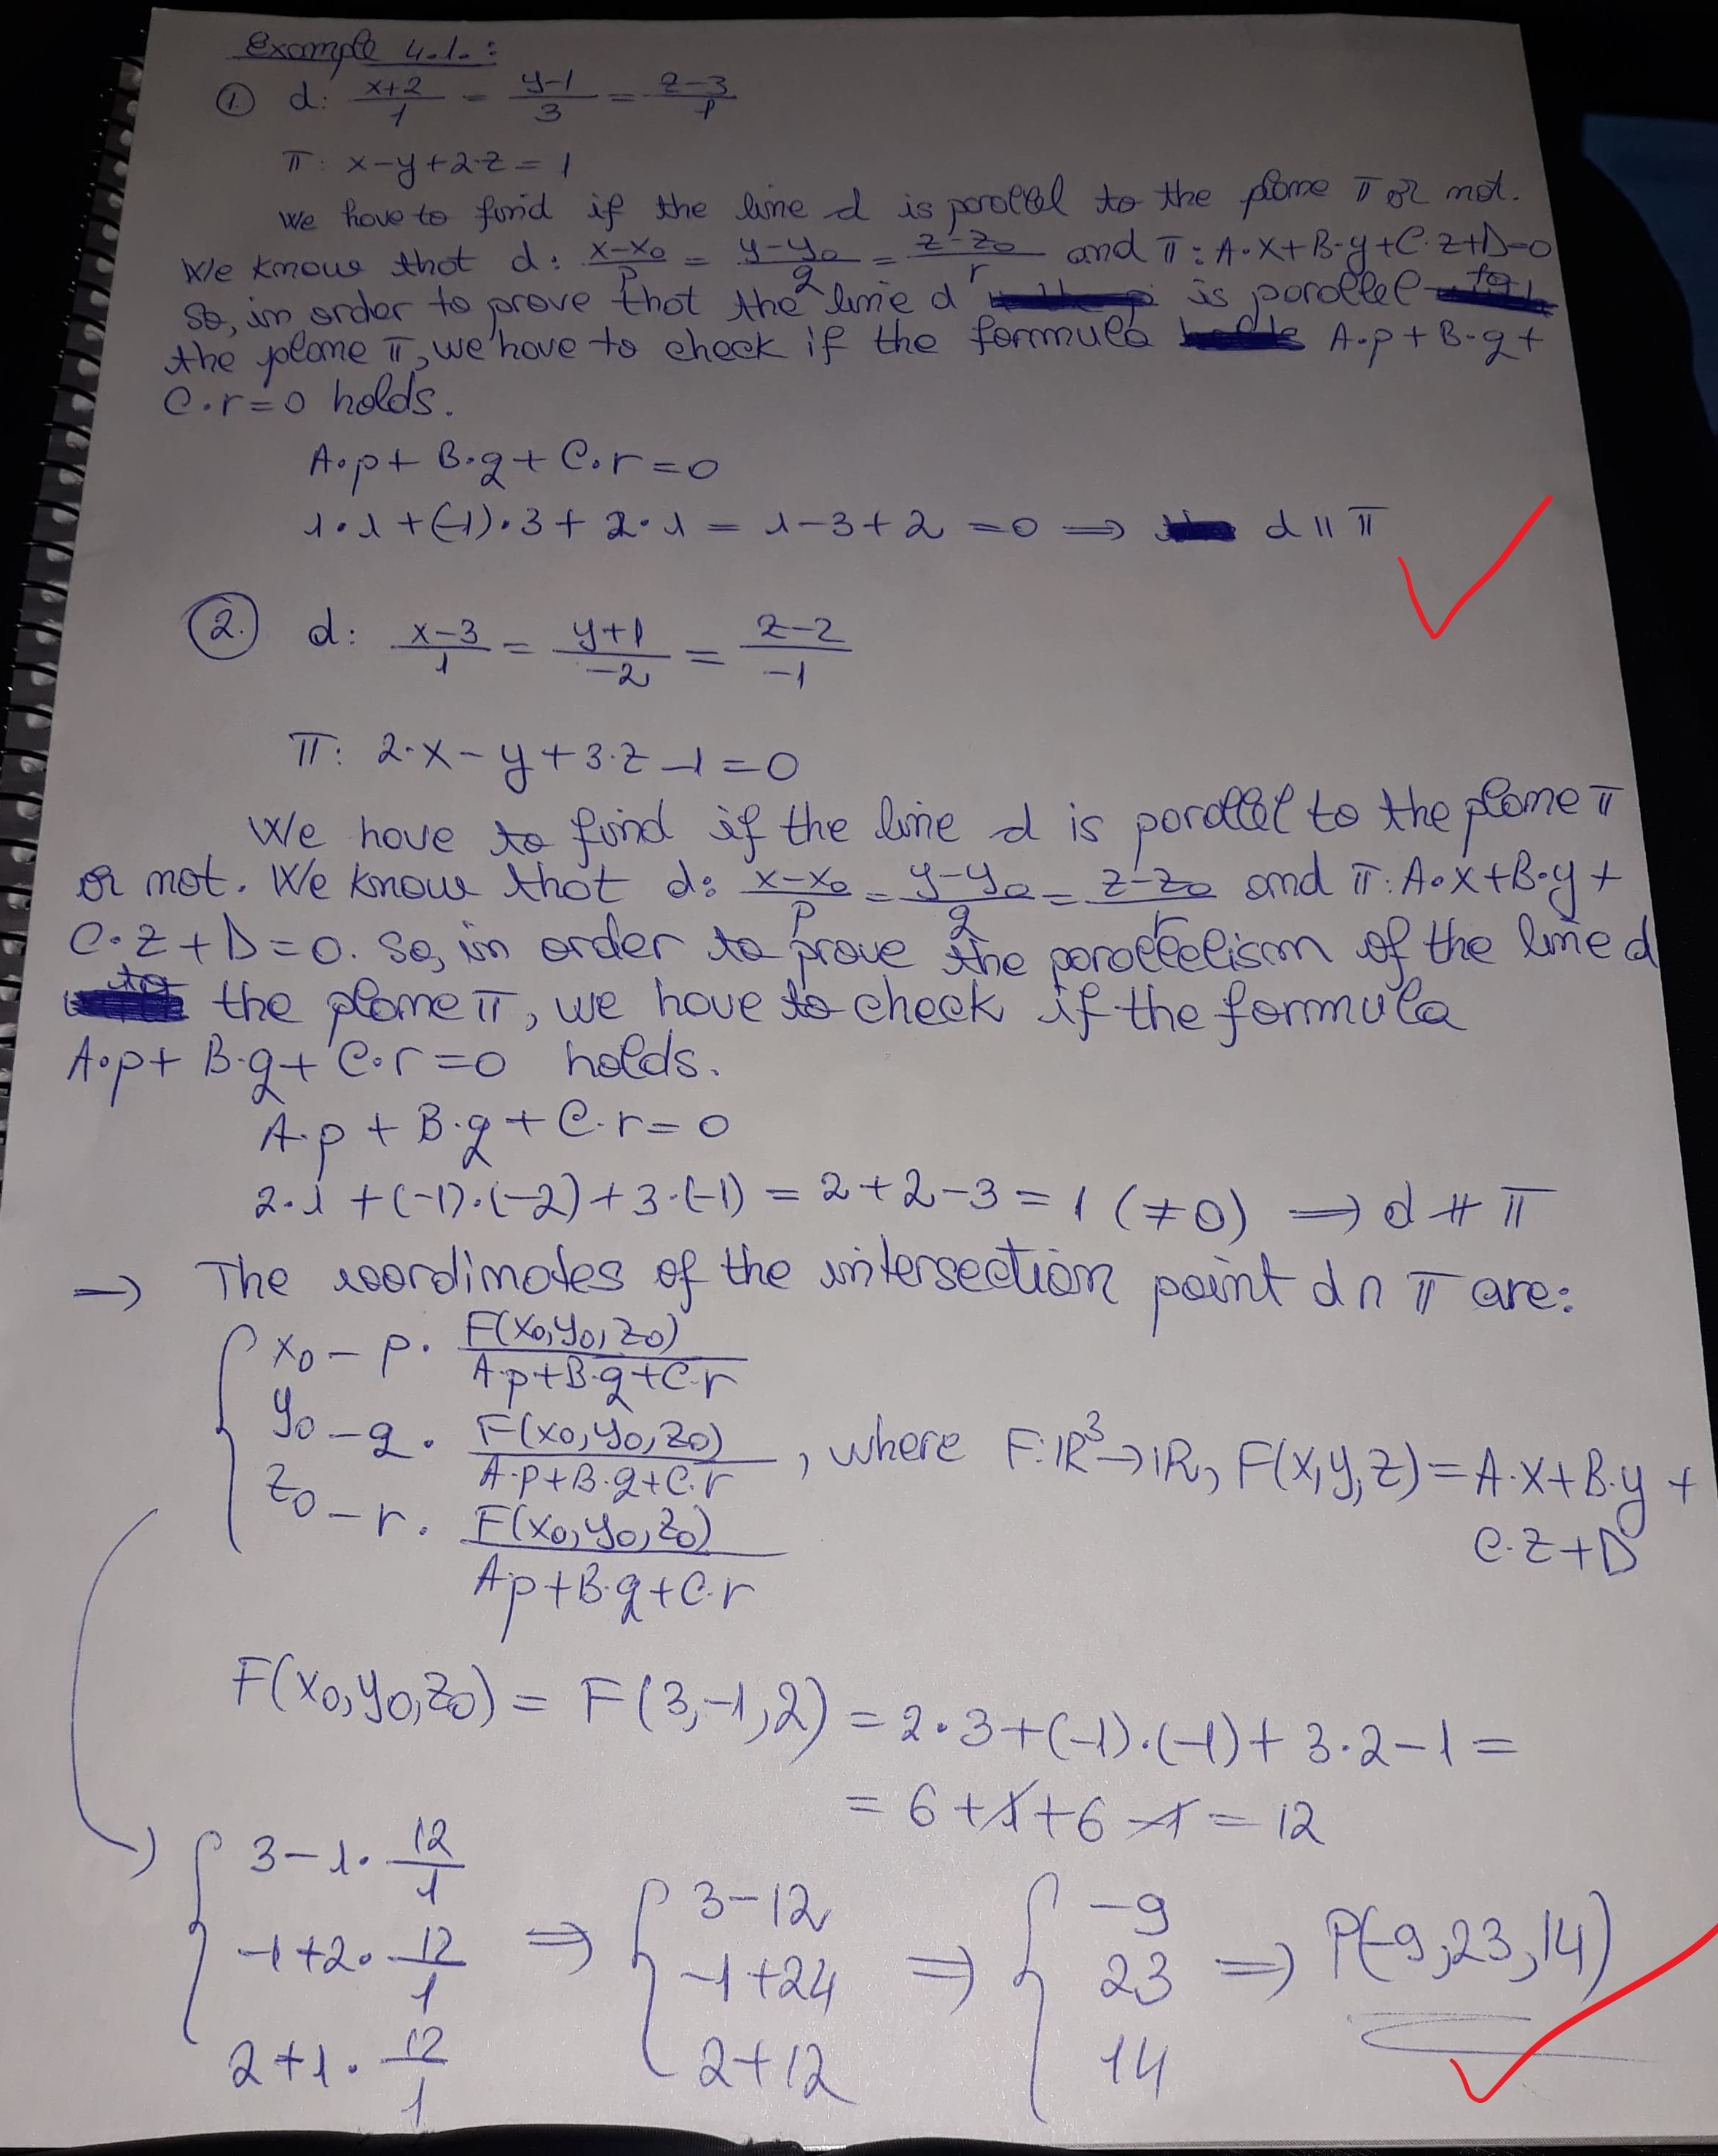 Example 4.1.:
① d: x+2/1 = y-1/3 = z-3/1
π: x-y+2·z=1
We have to find if the line d is parallel to the plane π or not.
We know that d: x-x₀/p = y-y₀/q = z-z₀/r and π: A·x+B·y+C·z+D=0
So, in order to prove that the line d is parallel to
the plane π, we have to check if the formula A·p+B·q+
C·r=0 holds.
A·p+B·q+C·r=0
1·1+(-1)·3+2·1=1-3+2=0 ⇒ d ∥ π
②. d: x-3/1 = y+1/-2 = z-2/-1
π: 2·x-y+3·z-1=0
We have to find if the line d is parallel to the plane π
or not. We know that d: x-x₀/p = y-y₀/q = z-z₀/r and π: A·x+B·y+
C·z+D=0. So, in order to prove the parallelism of the line d
to the plane π, we have to check if the formula
A·p+B·q+C·r=0 holds.
A·p+B·q+C·r=0
2·1+(-1)·(-2)+3·(-1)=2+2-3=1 (≠0) ⇒ d ∦ π
⇒ The coordinates of the intersection point d∩π are:
x₀-p· F(x₀,y₀,z₀)/A·p+B·q+C·r
y₀-q· F(x₀,y₀,z₀)/A·p+B·q+C·r , where F:ℝ³→ℝ, F(x,y,z)=A·x+B·y+
C·z+D
z₀-r· F(x₀,y₀,z₀)/A·p+B·q+C·r
F(x₀,y₀,z₀)=F(3,-1,2)=2·3+(-1)·(-1)+3·2-1=
=6+1+6-1=12
3-1·12/1 ⇒ 3-12 ⇒ -9
-1+2·12/1 ⇒ -1+24 ⇒ 23 ⇒ P(-9,23,14)
2+1·12/1 ⇒ 2+12 ⇒ 14